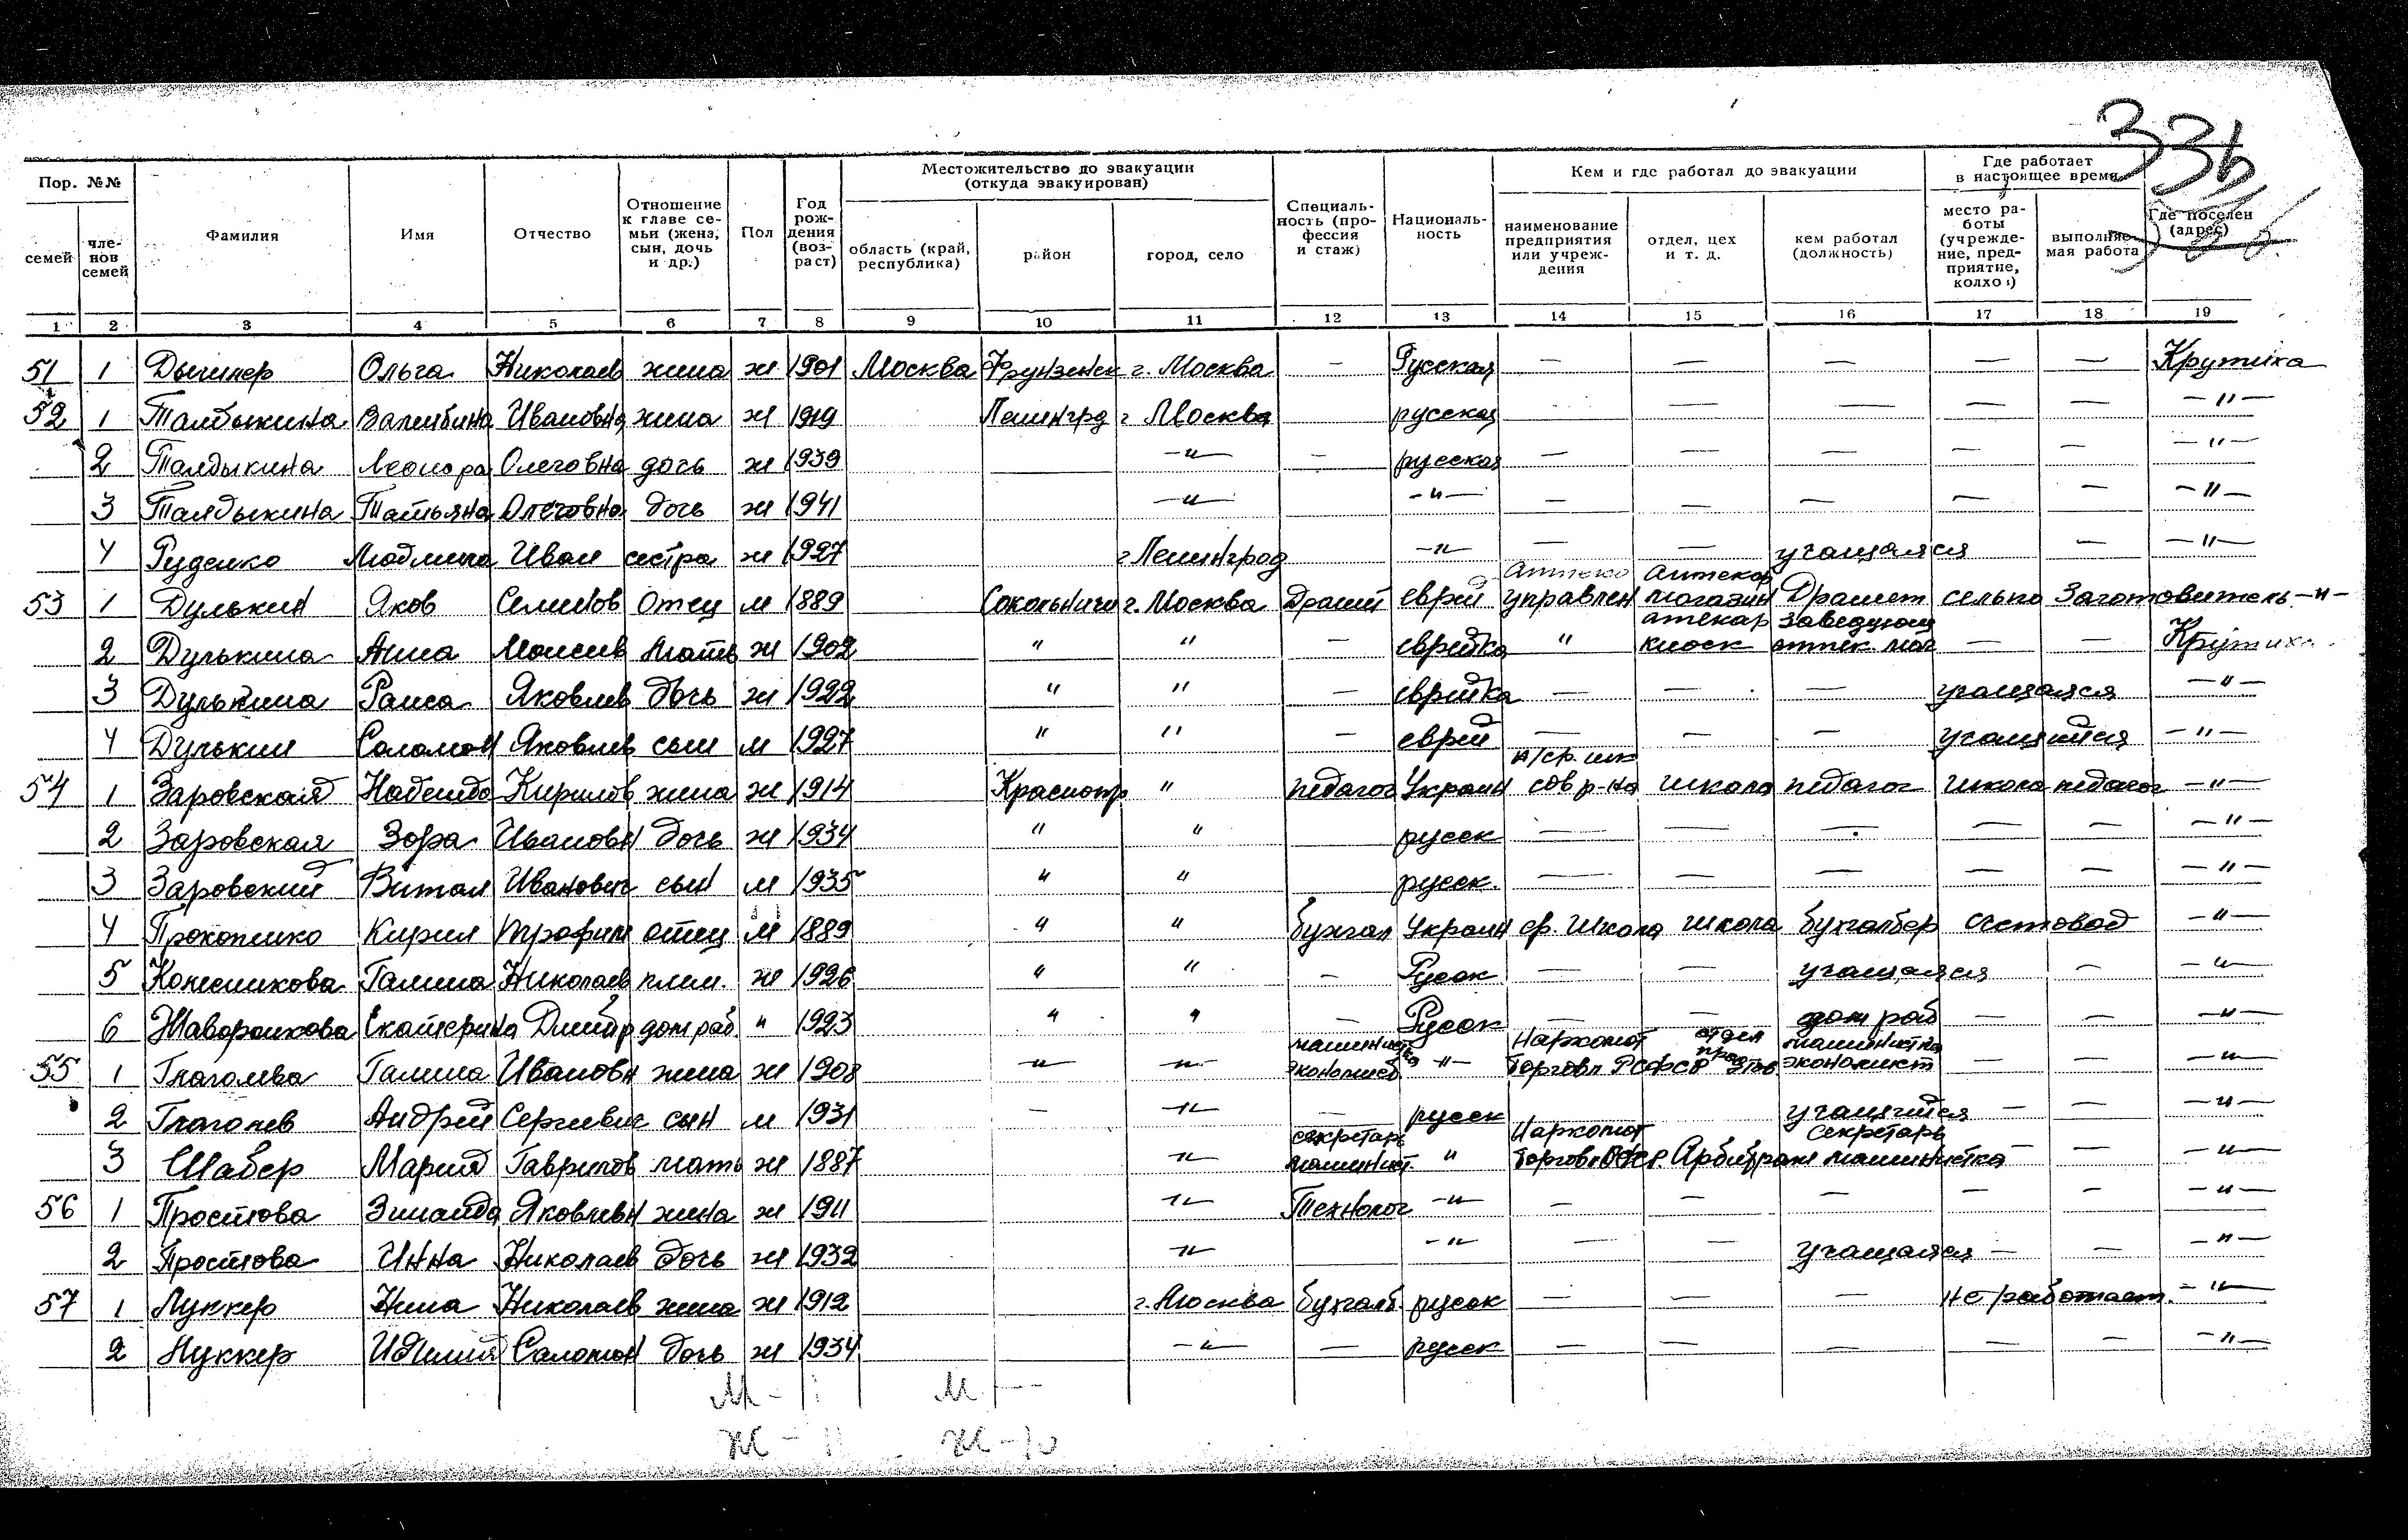 33б
Пор. №№
Местожительство до эвакуации (откуда эвакуирован)
Кем и где работал до эвакуации
Где работает в настоящее время
семей
чле- нов семей
Фамилия
Имя
Отчество
Отношение к главе се- мьи (жена, сын, дочь и др.)
Пол
Год рож- дения (воз- раст)
область (край, республика)
район
город, село
Специаль- ность (про- фессия и стаж)
Националь- ность
наименование предприятия или учреж- дения
отдел, цех и т. д.
кем работал (должность)
место ра- боты (учрежде- ние, пред- приятие, колхоз)
выполняе- мая работа
Где поселен (адрес)
1 2 3 4 5 6 7 8 9 10 11 12 13 14 15 16 17 18 19
51 1 Ольга Николаев жена ж 1901 Москва Фрунзенск г. Москва — Русская — — — — — Крутиха
52 1 Талдыкина Валентина Ивановна жена ж 1919 Ленингрд г Москва русская — — — — — —"—
2 Талдыкина Леонора Олеговна дочь ж 1939 —"— — русская — — — — — —"—
3 Талдыкина Татьяна Олеговна дочь ж 1941 —"— —"— — — — — — —"—
4 Руденко Людмила Иван сестра ж 1927 г Ленинград —"— — — учащаяся — —"—
53 1 Дулькин Яков Семенов отец м 1889 Сокольничи г. Москва еврей Аптеко управлен Аптекар магазин сельпо Заготовитель —"—
2 Дулькина Анна Моисеев мать ж 1902 " " — еврейка " аптекар киоск заведующ аптек. маг — — Крутиха
3 Дулькина Раиса Яковлев дочь ж 1922 " " — еврейка — — — учащаяся —"—
4 Дулькин Соломон Яковлев сын м 1927 " " — еврей — — — учащийся —"—
54 1 Заровская Надежда Кирилов жена ж 1914 " педагог Украин н/ср. шк сов р-на школа педагог школа педагог —"—
2 Заровская Зора Ивановн дочь ж 1934 " " русск — — — — — —"—
3 Заровский Витал Иванович сын м 1935 " " русск. — — — — — —"—
4 Прокопенко Кирил Трофим отец м 1889 " " бухгал Украин ср. школа школа бухгалтер счетовод —"—
5 Колесникова Галина Николаев плем. ж 1926 " " — Русск — — учащаяся — —"—
6 Жаворонкова Екатерина Дмитр дом раб. " 1923 " " — Русск дом раб — — —"—
55 1 Глаголева Галина Ивановн жена ж 1908 —"— —"— машинистка экономист —"— Наркомат торговл РСФСР отдел машинистка экономист — — —"—
2 Глаголев Андрей Сергеевич сын м 1931 — —"— — русск учащийся — — —"—
3 Шабер Мария Гаврилов мать ж 1887 —"— секретарь машинист. " Наркомат торговл РСФСР Арбитраж секретарь машинистка — —"—
56 1 Простова Зинаида Яковлевн жена ж 1911 —"— Технолог —"— — — — — — —"—
2 Простова Инна Николаев дочь ж 1932 —"— —"— — — учащаяся — — —"—
57 1 Луккер Нина Николаев жена ж 1912 г. Москва бухгалт. русск — — — не работает. —"—
2 Луккер Соломон дочь ж 1934 —"— — русск — — — — — —"—
М - М —
Ж - 11 Ж - 10